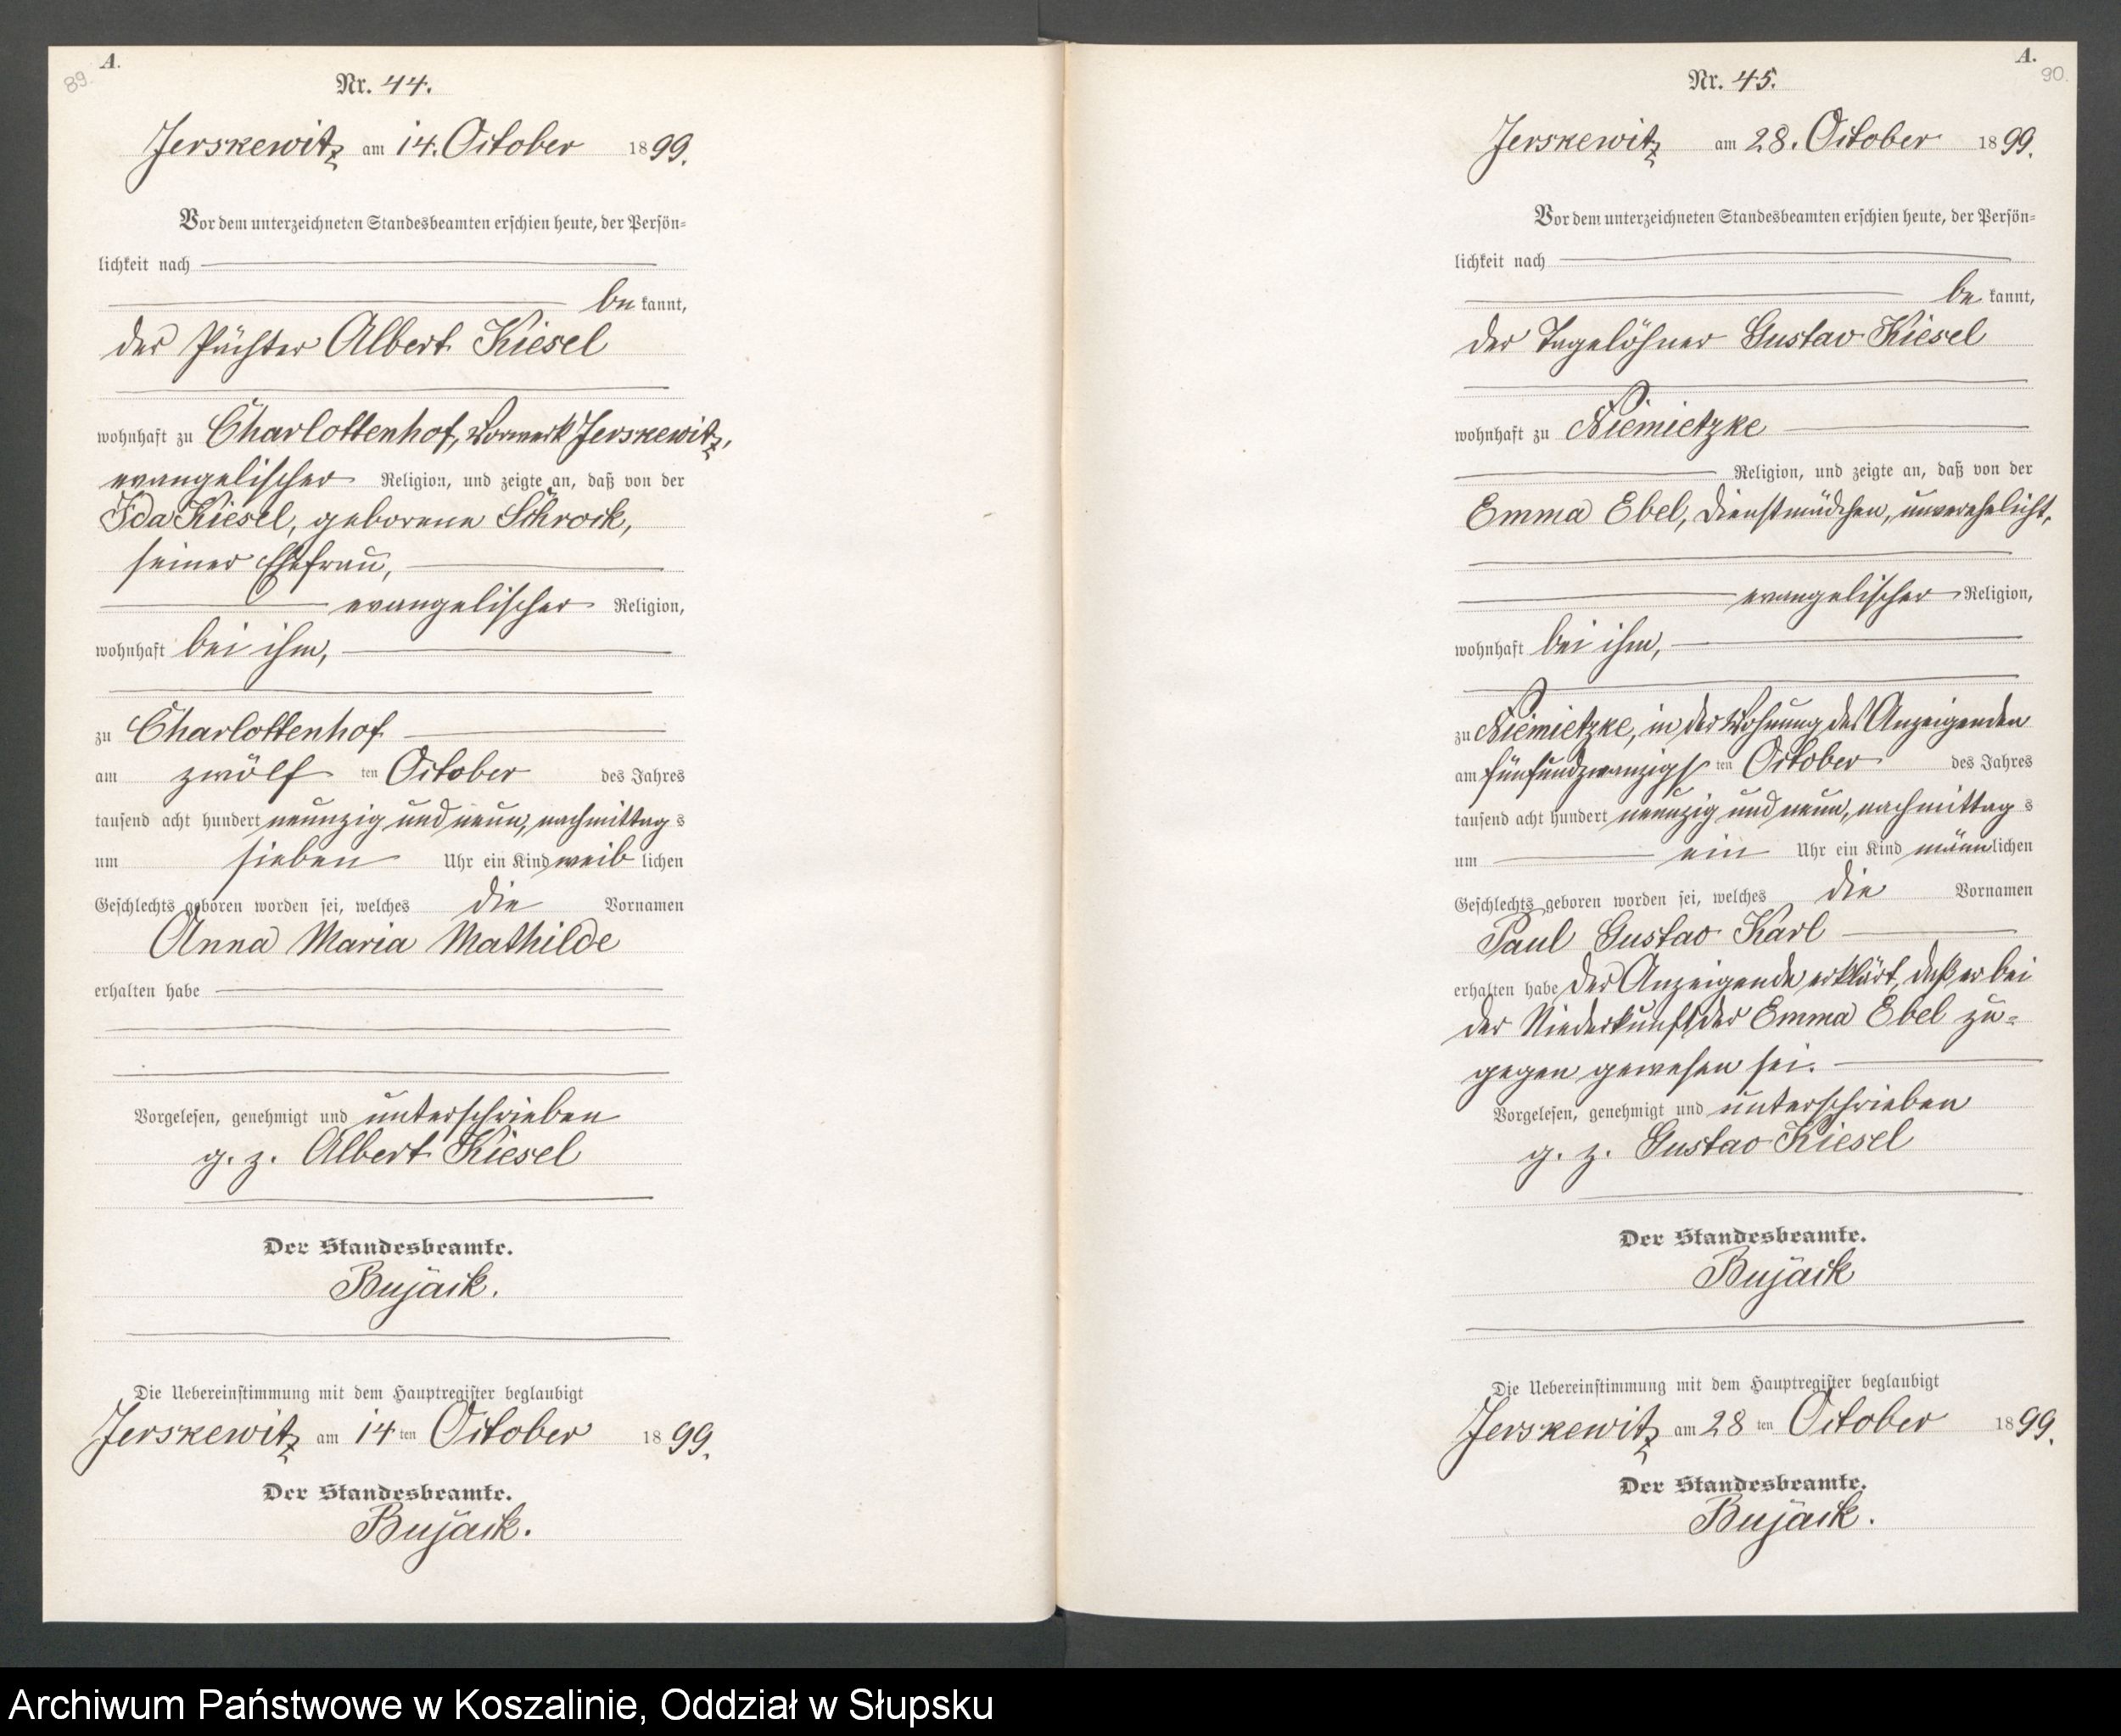 89.
A.
Nr. 44.
Jerskewitz am 14. October 1899.
Vor dem unterzeichneten Standesbeamten erschien heute, der Persön-
lichkeit nach
be kannt,
der Pächter Albert Kiesel
wohnhaft zu Charlottenhof, Vorwerk Jerskewitz,
evangelischer Religion, und zeigte an, daß von der
Ida Kiesel, geborene Schrock,
seiner Ehefrau,
evangelischer Religion,
wohnhaft bei ihm,
zu Charlottenhof
am zwölf ten October des Jahres
tausend acht hundert neunzig und neun, nachmittag s
um sieben Uhr ein Kind weib lichen
Geschlechts geboren worden sei, welches die Vornamen
Anna Maria Mathilde
erhalten habe
Vorgelesen, genehmigt und unterschrieben
g. z. Albert Kiesel
Der Standesbeamte.
Bujack.
Die Uebereinstimmung mit dem Hauptregister beglaubigt
Jerskewitz am 14 ten October 1899.
Der Standesbeamte.
Bujack.
A.
90.
Nr. 45.
Jerskewitz am 28. October 1899.
Vor dem unterzeichneten Standesbeamten erschien heute, der Persön-
lichkeit nach
be kannt,
der Tagelöhner Gustav Kiesel
wohnhaft zu Niemietzke
Religion, und zeigte an, daß von der
Emma Ebel, Dienstmädchen, unverehelicht,
evangelischer Religion,
wohnhaft bei ihm,
zu Niemietzke, in der Wohnung des Anzeigenden
am fünfundzwanzigs ten October des Jahres
tausend acht hundert neunzig und neun, nachmittag s
um ein Uhr ein Kind männ lichen
Geschlechts geboren worden sei, welches die Vornamen
Paul Gustav Karl
erhalten habe Der Anzeigende erklärt, daß er bei
der Niederkunft der Emma Ebel zu-
gegen gewesen sei.
Vorgelesen, genehmigt und unterschrieben
g. z. Gustav Kiesel
Der Standesbeamte.
Bujack
Die Uebereinstimmung mit dem Hauptregister beglaubigt
Jerskewitz am 28 ten October 1899.
Der Standesbeamte.
Bujack.
Archiwum Państwowe w Koszalinie, Oddział w Słupsku